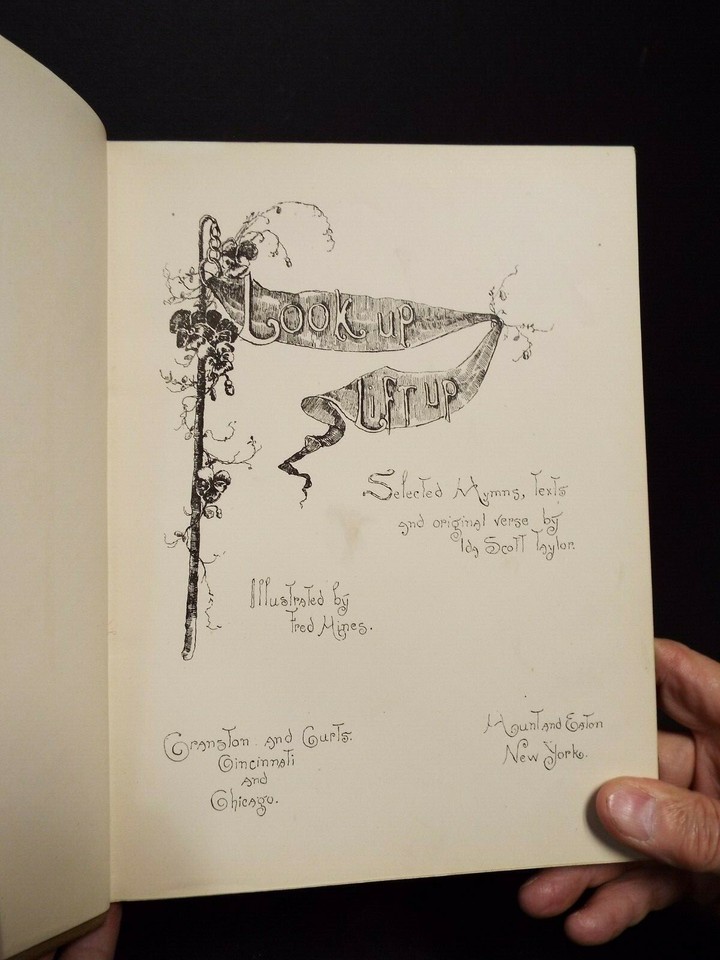 Look up
Lift up
Selected Hymns, Texts
and original verse by
Ida Scott Taylor.
Illustrated by
Fred Mines.
Cranston and Curts.
Cincinnati
and
Chicago.
Hunt and Eaton
New York.